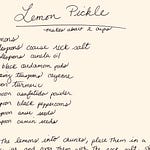 Lemon Pickle
makes about 2 cups
mons
spoons coarse rock salt
spoons canola oil
black cardamom pods
spoons cayenne
on turmeric
spoon asafoetida powder
spoon black peppercorns
spoon anise seeds
spoon cumin seeds
the lemons into chunks, place them in a
the rock salt